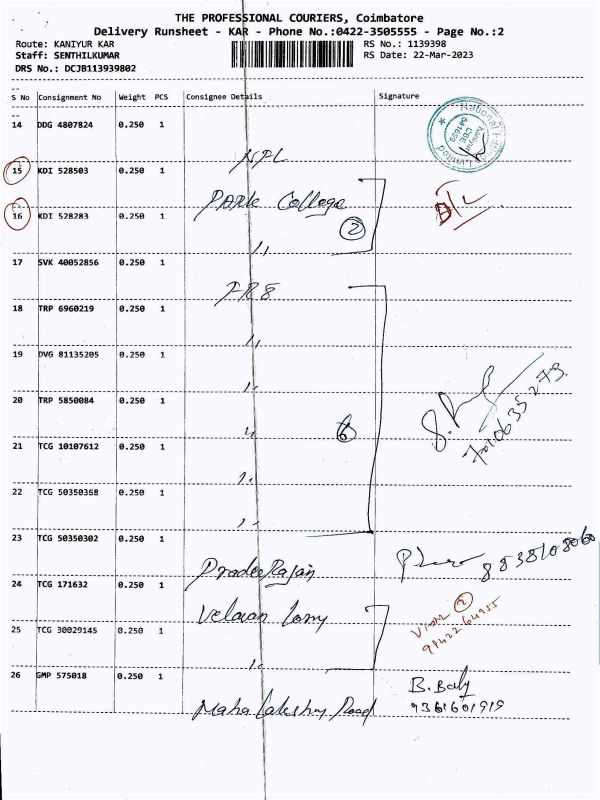 THE PROFESSIONAL COURIERS, Coimbatore
Delivery Runsheet - KAR - Phone No.:0422-3505555 - Page No.:2
Route: KANIYUR KAR
RS No.: 1139398
Staff: SENTHILKUMAR
RS Date: 22-Mar-2023
DRS No.: DCJB113939802
S No Consignment No Weight PCS Consignee Details Signature
14 DDG 4807824 0.250 1
NPL
15 KDI 528503 0.250 1
Park College
16 KDI 528283 0.250 1
2
17 SVK 40052856 0.250 1
18 TRP 6960219 0.250 1
19 DVG 81135205 0.250 1
20 TRP 5850084 0.250 1
6
21 TCG 10107612 0.250 1
22 TCG 50350368 0.250 1
23 TCG 50350302 0.250 1
24 TCG 171632 0.250 1
25 TCG 30029145 0.250 1
26 GMP 575018 0.250 1
B. Baly
9361601919